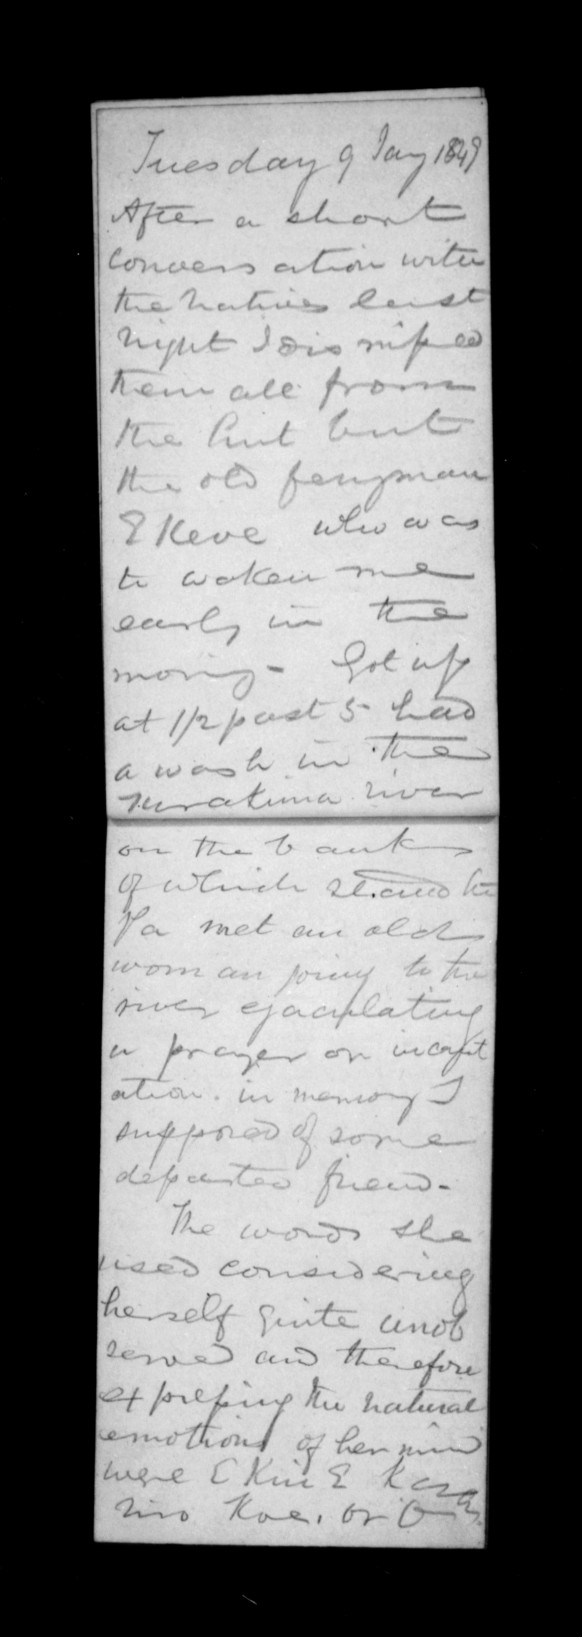 Tuesday 9 Jany 1849
After a short
convers ation with
the natives last
night I dismissed
them all from
the hut but
the old ferryman
E Keve who was
to waken me
early in the
mornig - Got up
at 1/2 past 5 had
a wash in the
river
on the banks
of which stand the
Pa met an old
woman going to the
river ejaculating
a prayer or incant
ation. in memory I
supposed of some
departed friend -
The words she
used considering
herself quite unob
served and therefore
expressing the natural
emotions of her mind
were E Kiu E
Koe. or O